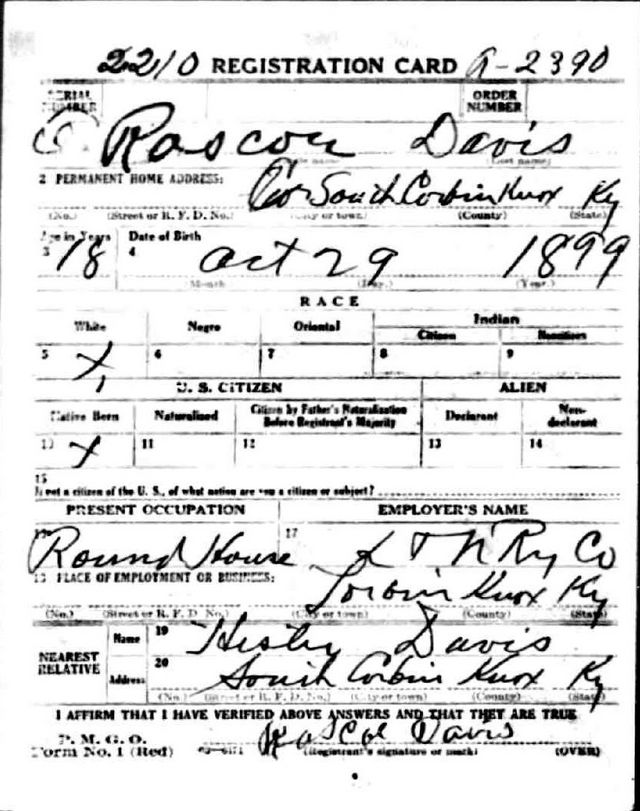 2210 REGISTRATION CARD A-2390
SERIAL NUMBER ORDER NUMBER
Rascou Davis
2 PERMANENT HOME ADDRESS:
South Corbin Knox Ky
(No.) (Street or R. F. D. No.) (City or town) (County) (State)
Age in Years Date of Birth
3 18 4 Oct 29 1899
Month (Day.) (Year.)
RACE
White Negro Oriental Indian
Citizen Noncitizen
5 X 6 7 8 9
U. S. CITIZEN ALIEN
Native Born Naturalized Citizen by Father's Naturalization Before Registrant's Majority Declarant Non-declarant
10 X 11 12 13 14
15
If not a citizen of the U. S., of what nation are you a citizen or subject?
PRESENT OCCUPATION EMPLOYER'S NAME
16 17
Round House L & N Ry Co
18 PLACE OF EMPLOYMENT OR BUSINESS:
Corbin Knox Ky
(No.) (Street or R. F. D. No.) (City or town) (County) (State)
NEAREST RELATIVE
Name 19 Davis
Address 20 South Corbin Knox Ky
(No.) (Street or R. F. D. No.) (City or town) (County) (State)
I AFFIRM THAT I HAVE VERIFIED ABOVE ANSWERS AND THAT THEY ARE TRUE
P. M. G. O.
Form No. 1 (Red) Rascoe Davis
(Registrant's signature or mark) (OVER)